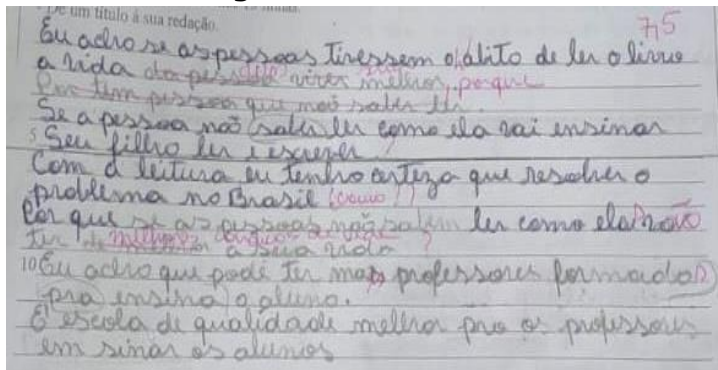 De um título à sua redação.
7,5
Eu acho se as pessoas tivessem o abito de ler o livro
a vida das pessoas viver melhor, porque
Por tem pessoa que naõ saber ler.
Se a pessoa naõ saber ler como ela vai ensinar
5 Seu filho ler i escrever ?
Com a leitura eu tenho certeza que resolver o
problema no Brasil (como!)
Por que se as pessoas naõ sabem ler como ela vão
ter a sua vida ?
10 Eu acho que pode ter mas professores formado
pra ensina o aluno.
E escola de qualidade melhor pra os professores
em sinar os alunos